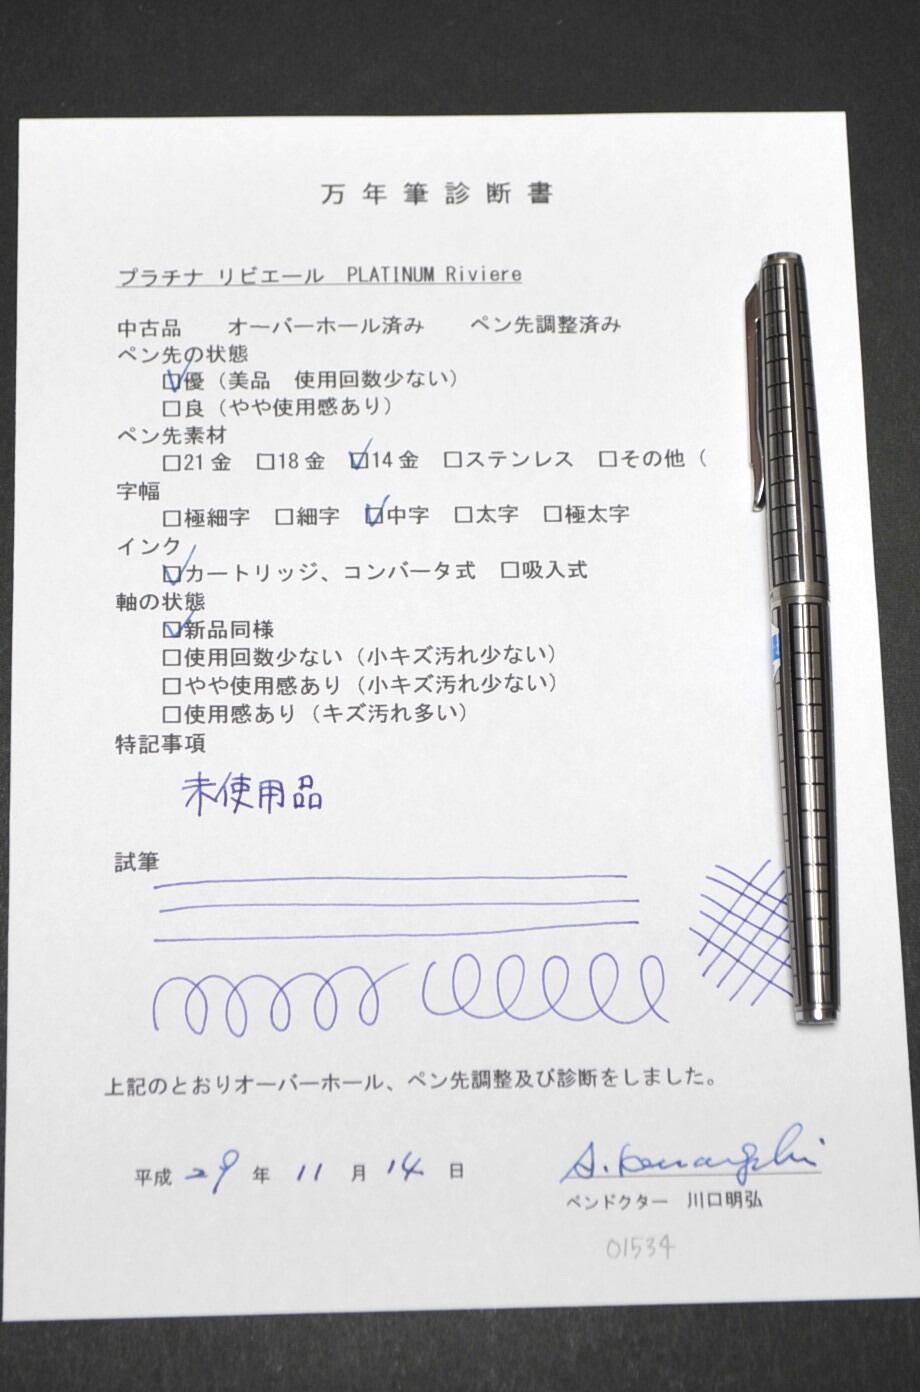 万年筆診断書
プラチナ リビエール PLATINUM Riviere
中古品 オーバーホール済み ペン先調整済み
ペン先の状態
☑優（美品 使用回数少ない）
□良（やや使用感あり）
ペン先素材
□21金 □18金 ☑14金 □ステンレス □その他（
字幅
□極細字 □細字 ☑中字 □太字 □極太字
インク
☑カートリッジ、コンバータ式 □吸入式
軸の状態
☑新品同様
□使用回数少ない（小キズ汚れ少ない）
□やや使用感あり（小キズ汚れ少ない）
□使用感あり（キズ汚れ多い）
特記事項
未使用品
試筆
上記のとおりオーバーホール、ペン先調整及び診断をしました。
平成 29 年 11 月 14 日
ペンドクター 川口明弘
01534